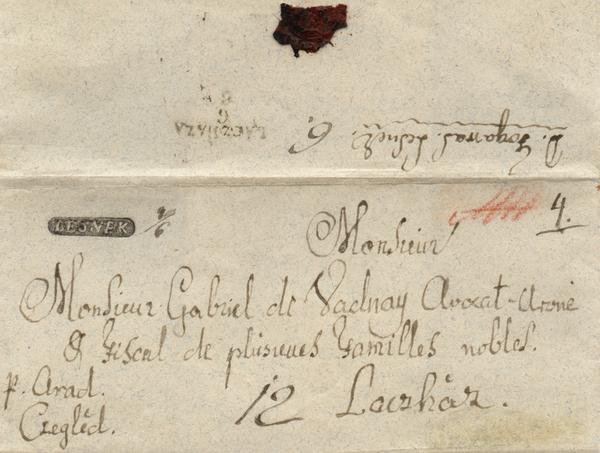 LACZHAZA
6.
LESNEK
4.
Monsieur
Monsieur Gabriel de Vadnay Avocat-Aroné
& fiscal de plusieues familles nobles.
p. Arad.
Czegléd.
12 Laczház.